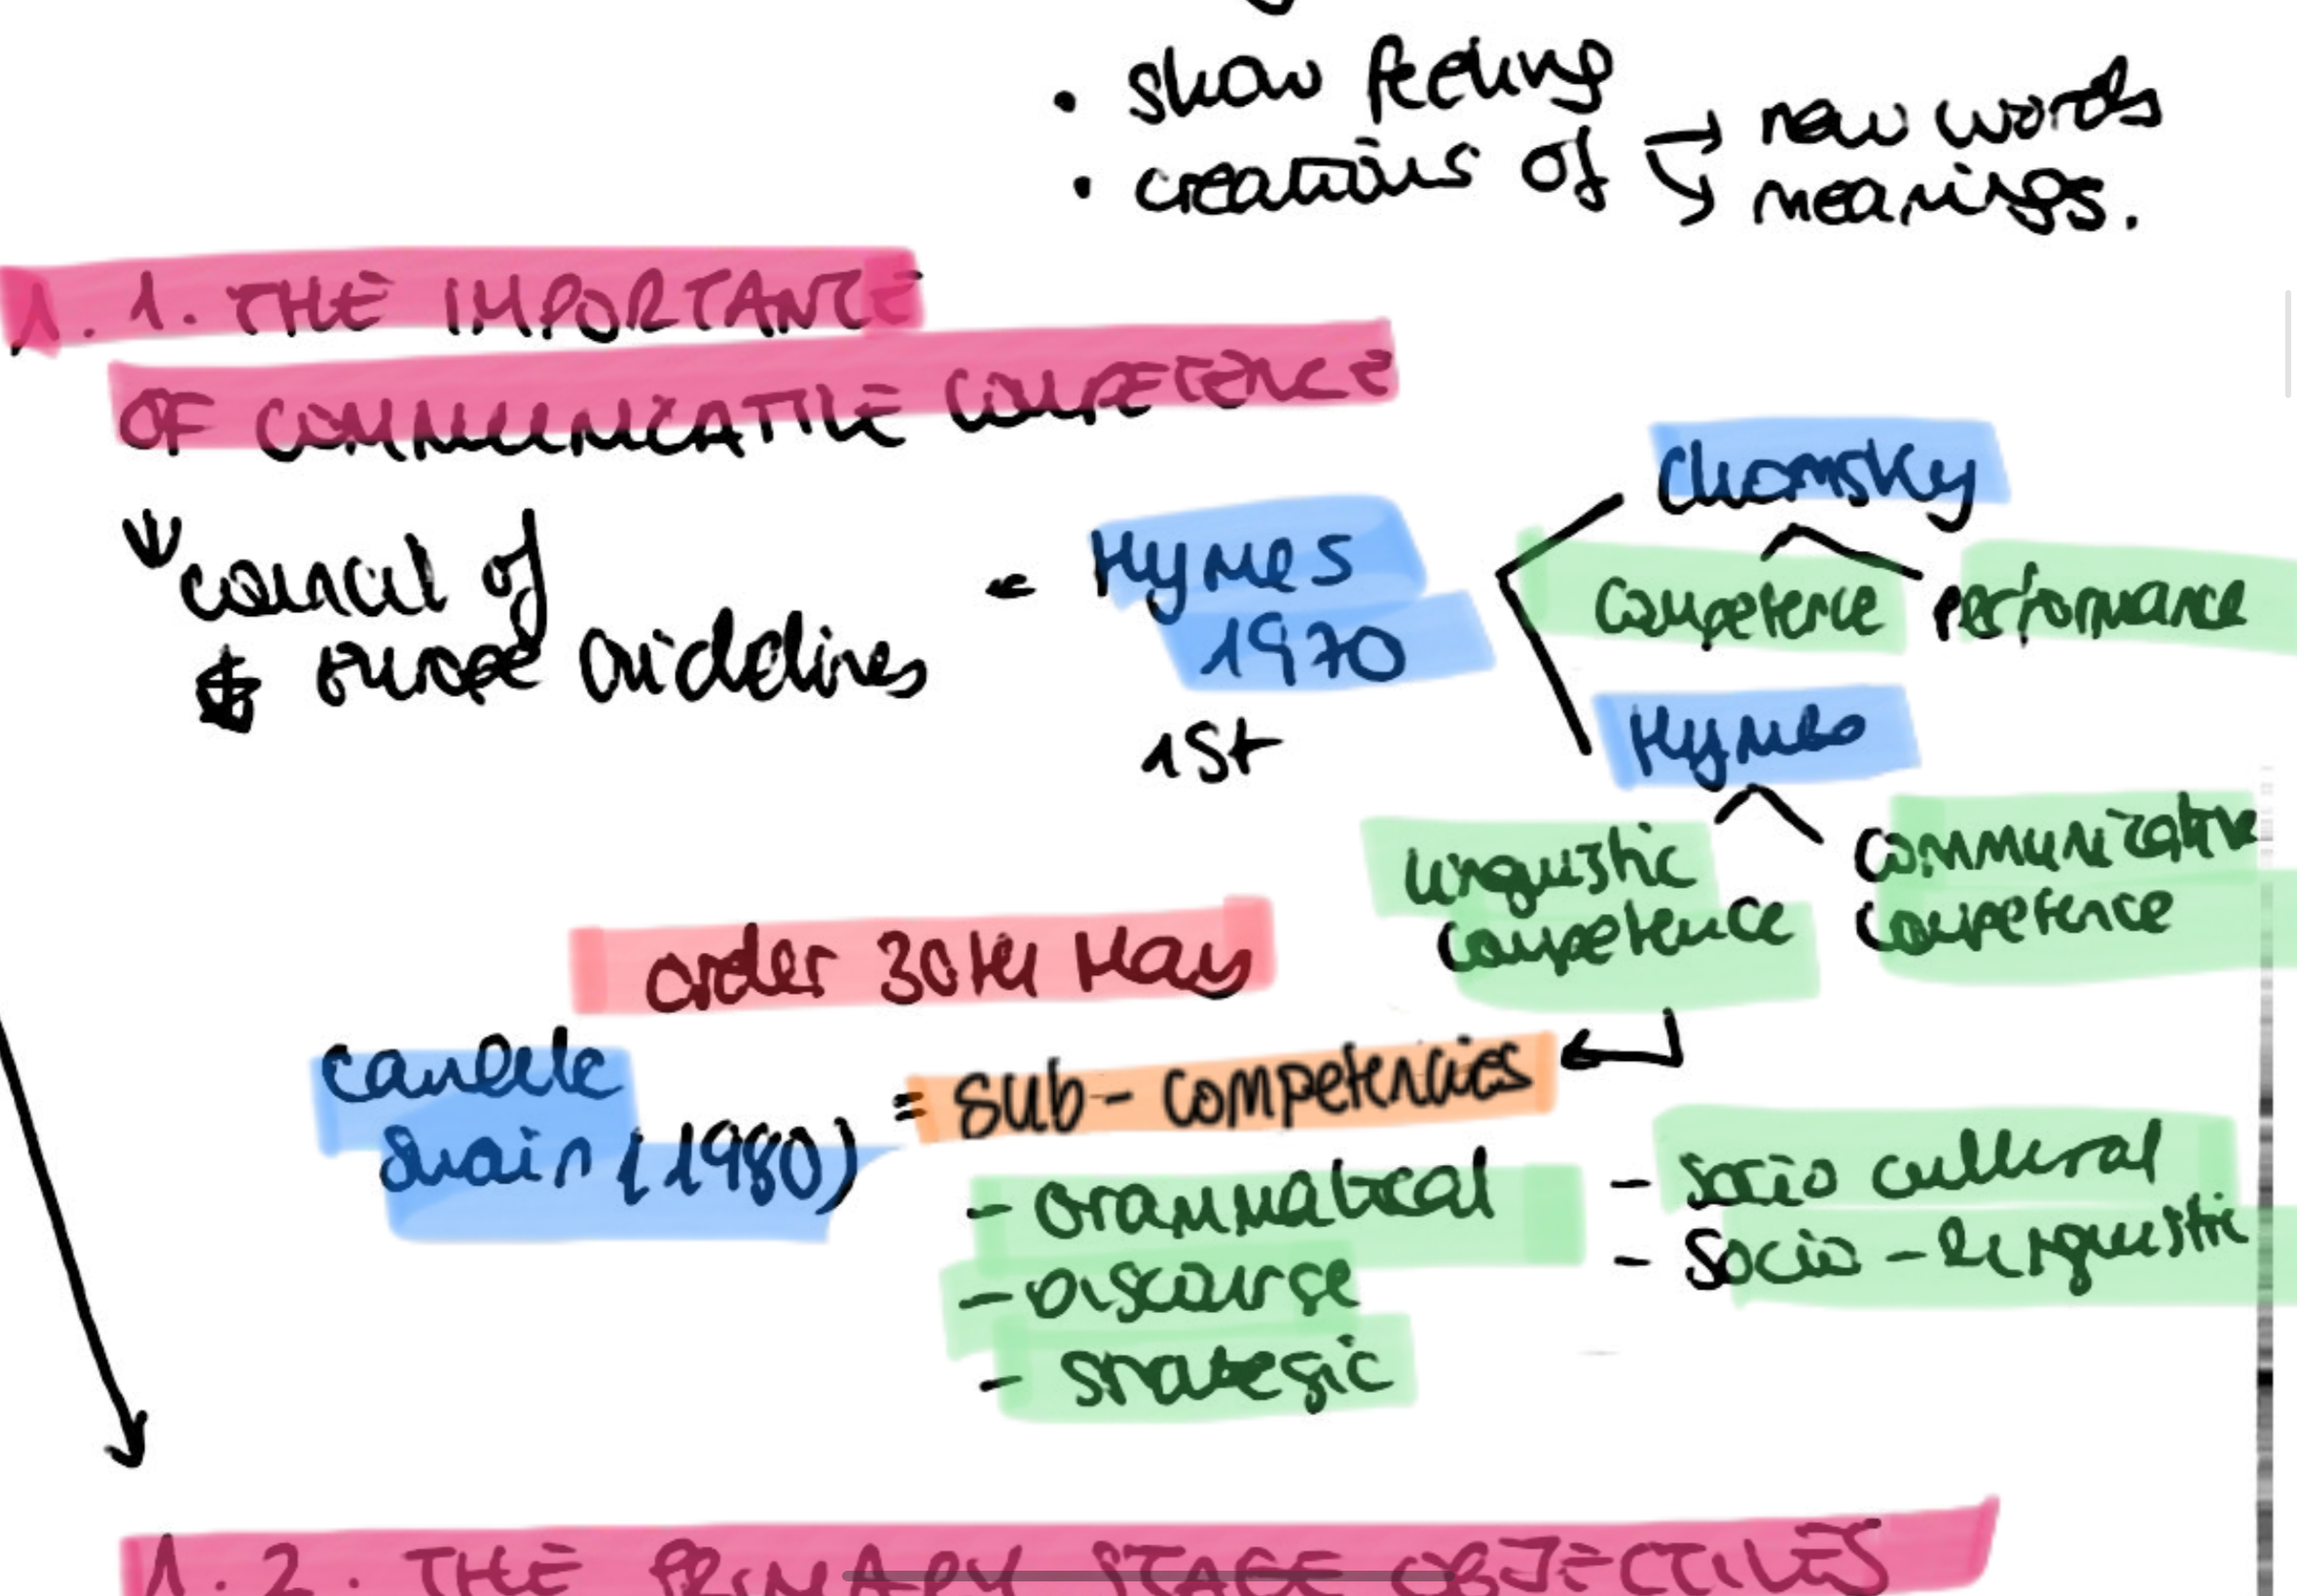 • show feeling
• creations of → new words
→ meanings.
1.1. THE IMPORTANCE
OF COMMUNICATIVE COMPETENCE
council of
europe Guidelines
- Hymes
1970
1st
Chomsky
competence performance
Hymes
linguistic
competence
communicative
competence
order 30th May
Canale
Swain (1980)
= sub-competencies
- Grammatical
- Discourse
- strategic
- socio cultural
- Socio-linguistic
1.2. THE PRIMARY STAGE OBJECTIVES